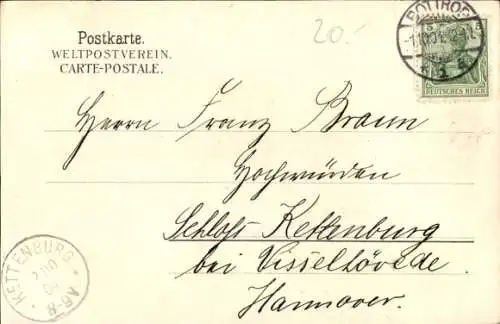 Postkarte.
WELTPOSTVEREIN.
CARTE-POSTALE.
20.-
DEUTSCHES REICH
Herrn Franz Braun
Hochwürden
Schloß Kettenburg
bei Visselhövede.
Hannover.
KETTENBURG